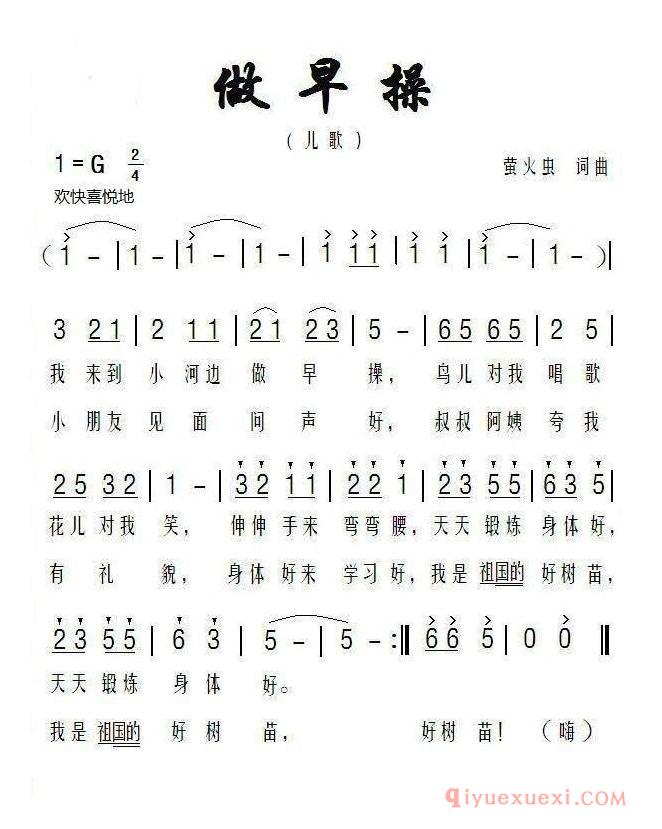 做早操
（儿歌）
1=G 2/4
萤火虫 词曲
欢快喜悦地
（1 - | 1 - | 1 - | 1 - | 1 11 | 1 1 | 1 - | 1 - ）|
3 21 | 2 11 | 21 23 | 5 - | 65 65 | 2 5 |
我 来到 小 河边 做 早 操， 鸟儿 对我 唱 歌
小 朋友 见 面 问 声 好， 叔叔 阿姨 夸 我
25 32 | 1 - | 32 11 | 22 1 | 23 55 | 63 5 |
花儿 对我 笑， 伸伸 手来 弯弯 腰，天天 锻炼 身体 好，
有 礼 貌， 身体 好来 学习 好，我是 祖国的 好树 苗，
23 55 | 6 3 | 5 - | 5 - :‖ 66 5 | 0 0 ‖
天天 锻炼 身 体 好。
我是 祖国的 好 树 苗， 好树 苗！（嗨）
Qiyuexuexi.com